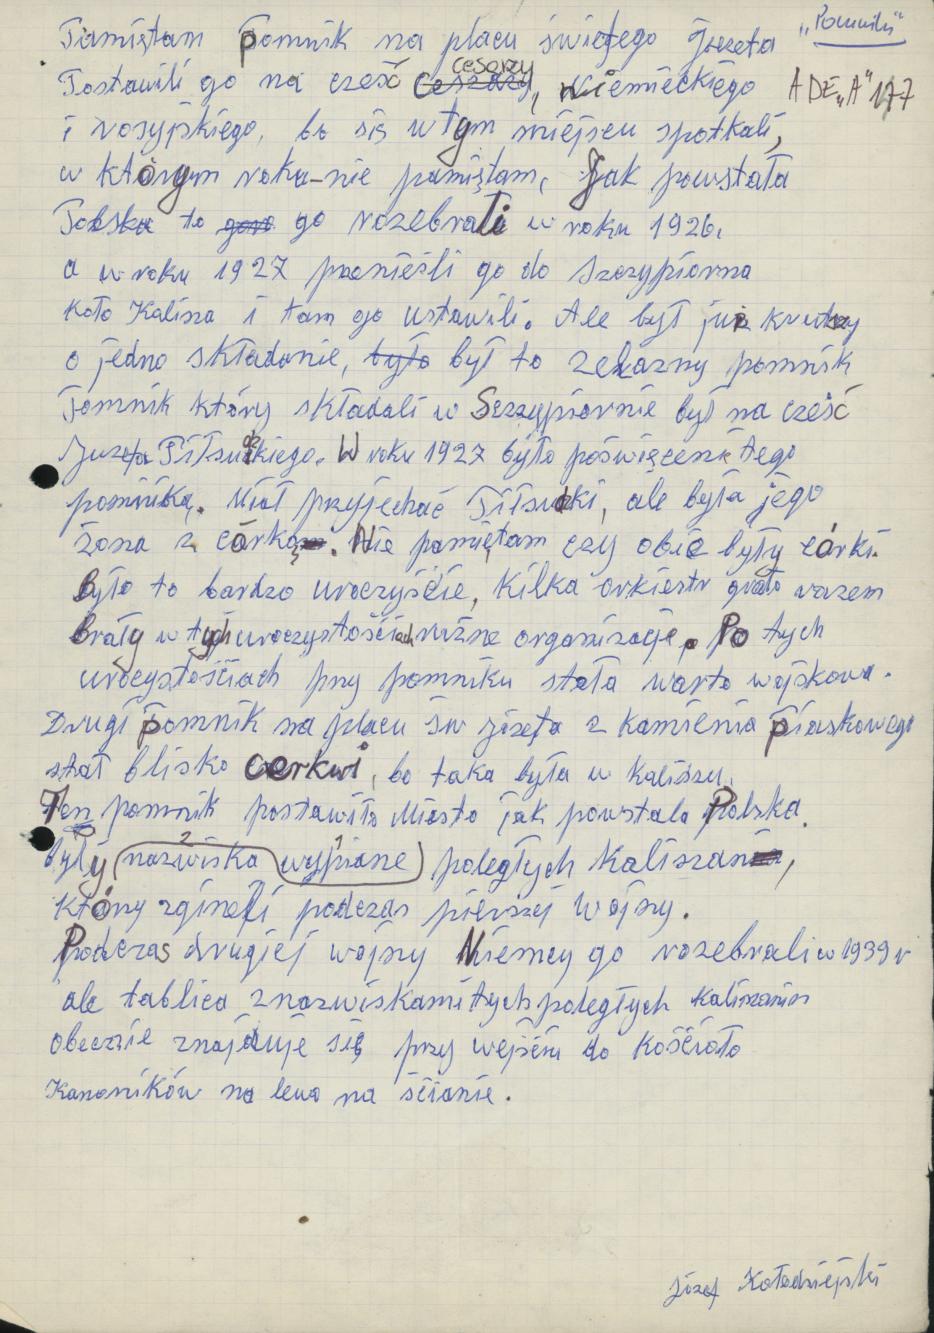 „Pomniki"
ADE „A" 177
Pamiętam pomnik na placu świętego Juzefa
Postawili go na cześć cesarzy, Niemieckiego
i rosyjskiego, bo się w tym miejscu spotkali,
w którym roku-nie pamiętam, Jak powstała
Polska to go rozebrali w roku 1926.
a w roku 1927 przenieśli go do Szczypiorna
koło Kalisza i tam go ustawili. Ale był już krutszy
o jedno składanie, było był to żelazny pomnik
Pomnik który składali w Szczypiornie był na cześć
Juzefa Piłsudzkiego. W roku 1927 było poświęcenie tego
pomnika. Miał przyjechać Piłsudzki, ale była jego
żona z córką. Nie pamiętam czy obie były córki.
Było to bardzo uroczyście, kilka orkiestr grało razem
brały w tych uroczystościach rużne organizacje. Po tych
urocystościach pry pomniku stała warta wojskowa.
Drugi pomnik na placu św józefa z kamienia piaskowego
stał blisko cerkwi, bo taka była w Kaliszu.
Ten pomnik postawiło Miasto jak powstala Polska.
były nazwiska wypisane poległych Kaliszan,
którzy zgineli podczas pierszej wojny.
Podczas drugiej wojny Niemcy go rozebrali w 1939 r
ale tablica z nazwiskami tych poległych kaliszanin
obecnie znajduje się przy wejściu do kościoła
Kanoników na lewo na ścianie.
Józef Kołodziejski